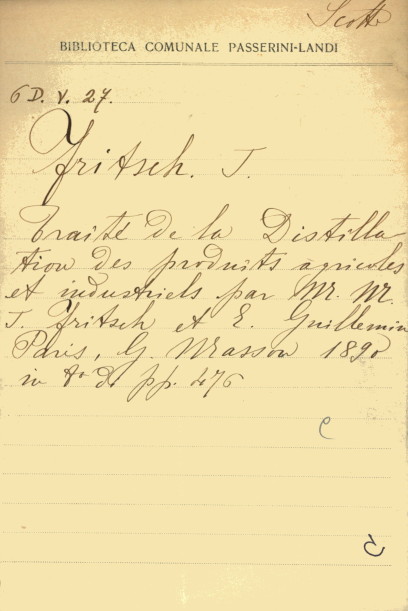 Scotti
BIBLIOTECA COMUNALE PASSERINI-LANDI
6 D. V. 27.
Fritsch. J.
Traité de la Distilla
tion des produits agricoles
et industriels par M. M.
J. Fritsch et E. Guillemin
Paris, G. Masson 1890
in 8° d. pp. 476
e
5